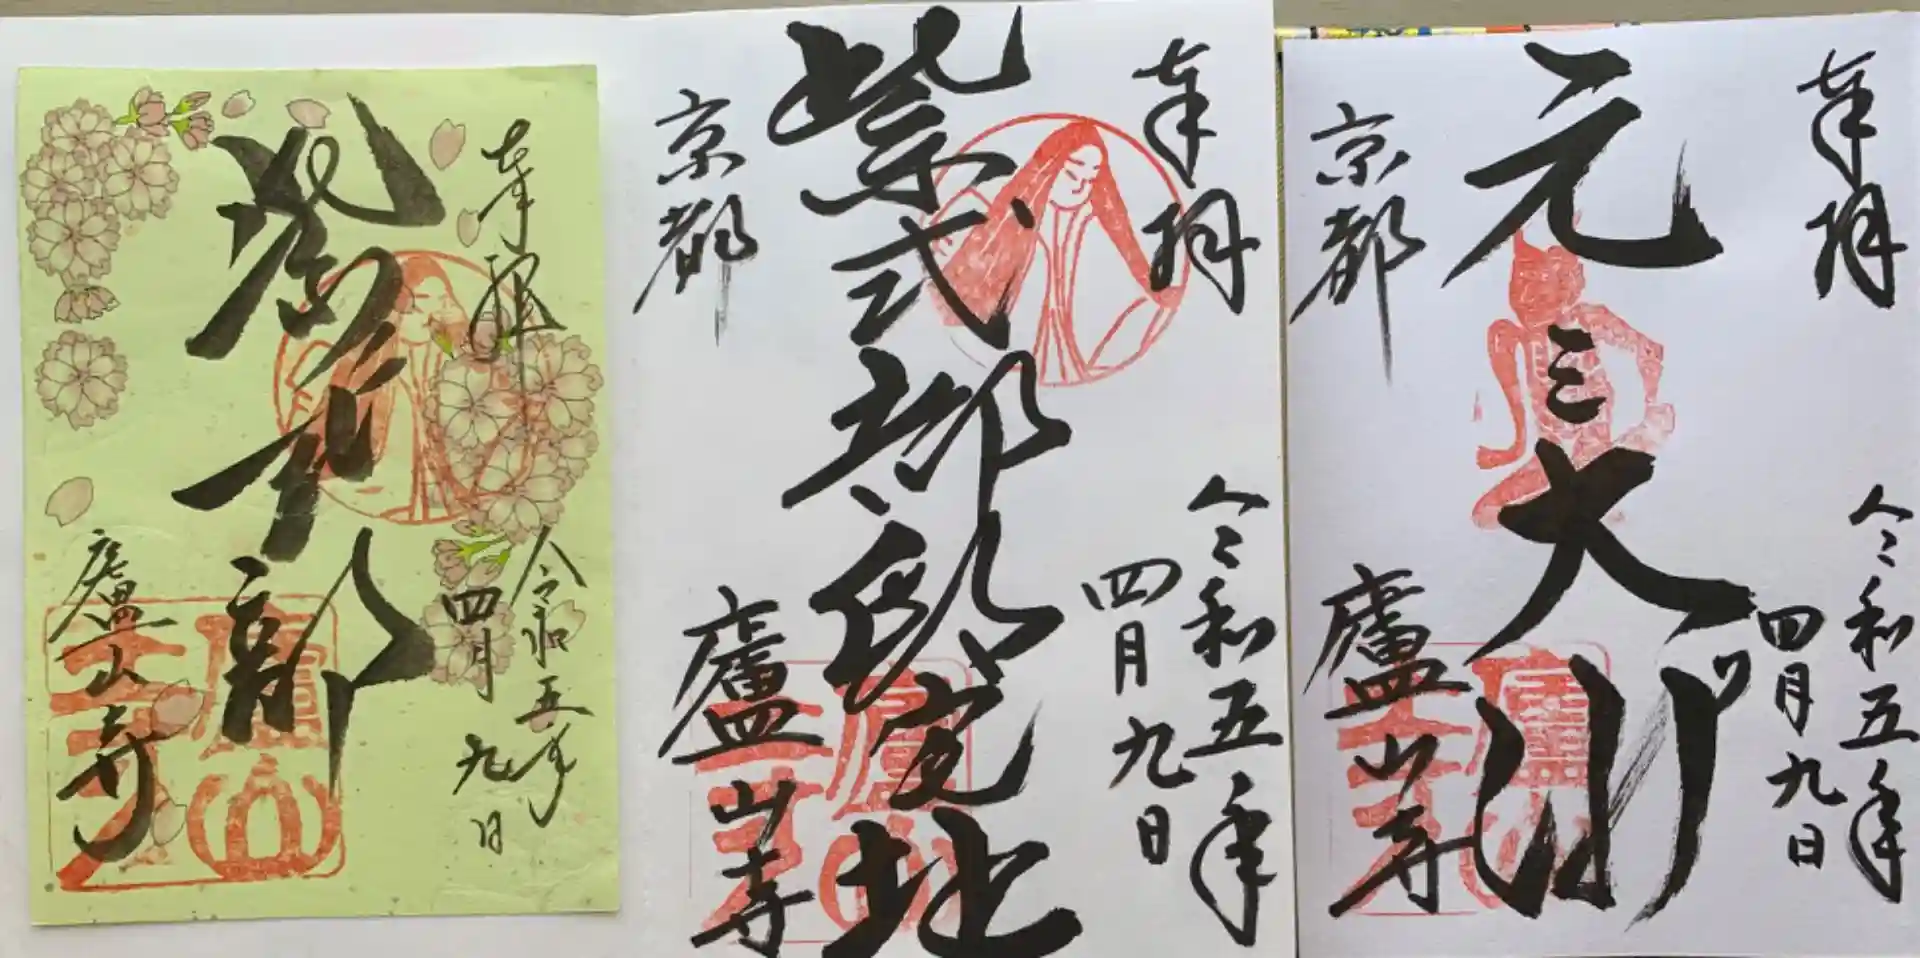 奉拝
令和五年
四月九日
紫式部
廬山寺
廬山寺
奉拝
令和五年
四月九日
紫式部邸宅址
京都
廬山寺
廬山寺
奉拝
令和五年
四月九日
元三大師
京都
廬山寺
廬山寺